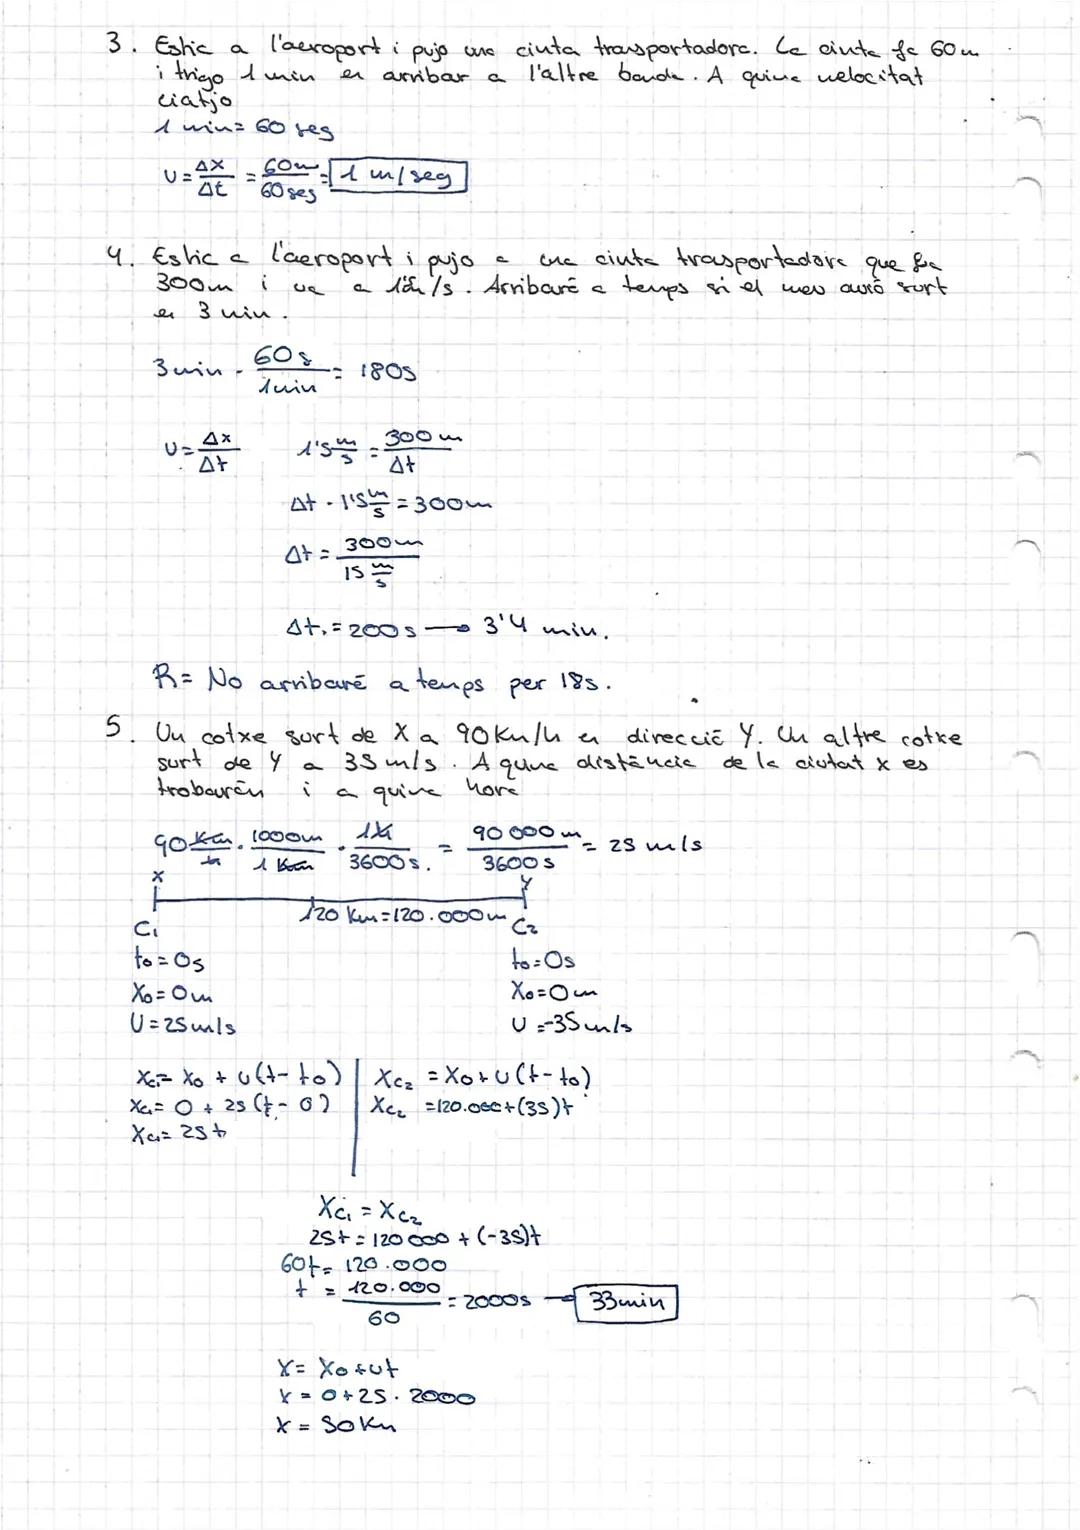 3. Estic a l'aeroport i pujo una cinta transportadora. La cinta fa 60m
i trigo 1 min en arribar a l'altre banda. A quina velocitat
viatjo
1 min = 60 seg
v = Δx/Δt = 60m/60seg = 1 m/seg
4. Estic a l'aeroport i pujo a una cinta trasportadora que fa
300m i va a 1'5m/s. Arribaré a temps si el meu avió surt
en 3 min.
3 min · 60s/1min = 180s
v = Δx/Δt 1'5 m/s = 300m/Δt
Δt · 1'5 m/s = 300m
Δt = 300m/15 m/s
Δt. = 200s → 3'4 min.
R = No arribaré a temps per 18s.
5. Un cotxe surt de X a 90Km/h en direcció Y. Un altre cotxe
surt de Y a 35 m/s. A quina distància de la ciutat x es
trobaràn i a quina hora
90 Km/h · 1000m/1 Km · 1h/3600s. = 90 000 m/3600s = 25 m/s
X Y
120 Km = 120.000m
C1 C2
to = 0s to = 0s
Xo = 0m Xo = 0m
U = 25m/s U = -35m/s
Xc1 = Xo + u(t - to) Xc2 = Xo + U(t - to)
Xc1 = 0 + 25(t - 0) Xc2 = 120.000 + (35)t
Xc1 = 25t
Xc1 = Xc2
25t = 120 000 + (-35)t
60t = 120.000
t = 120.000/60 = 2000s → 33min
X = Xo + ut
X = 0 + 25 · 2000
X = 50Km